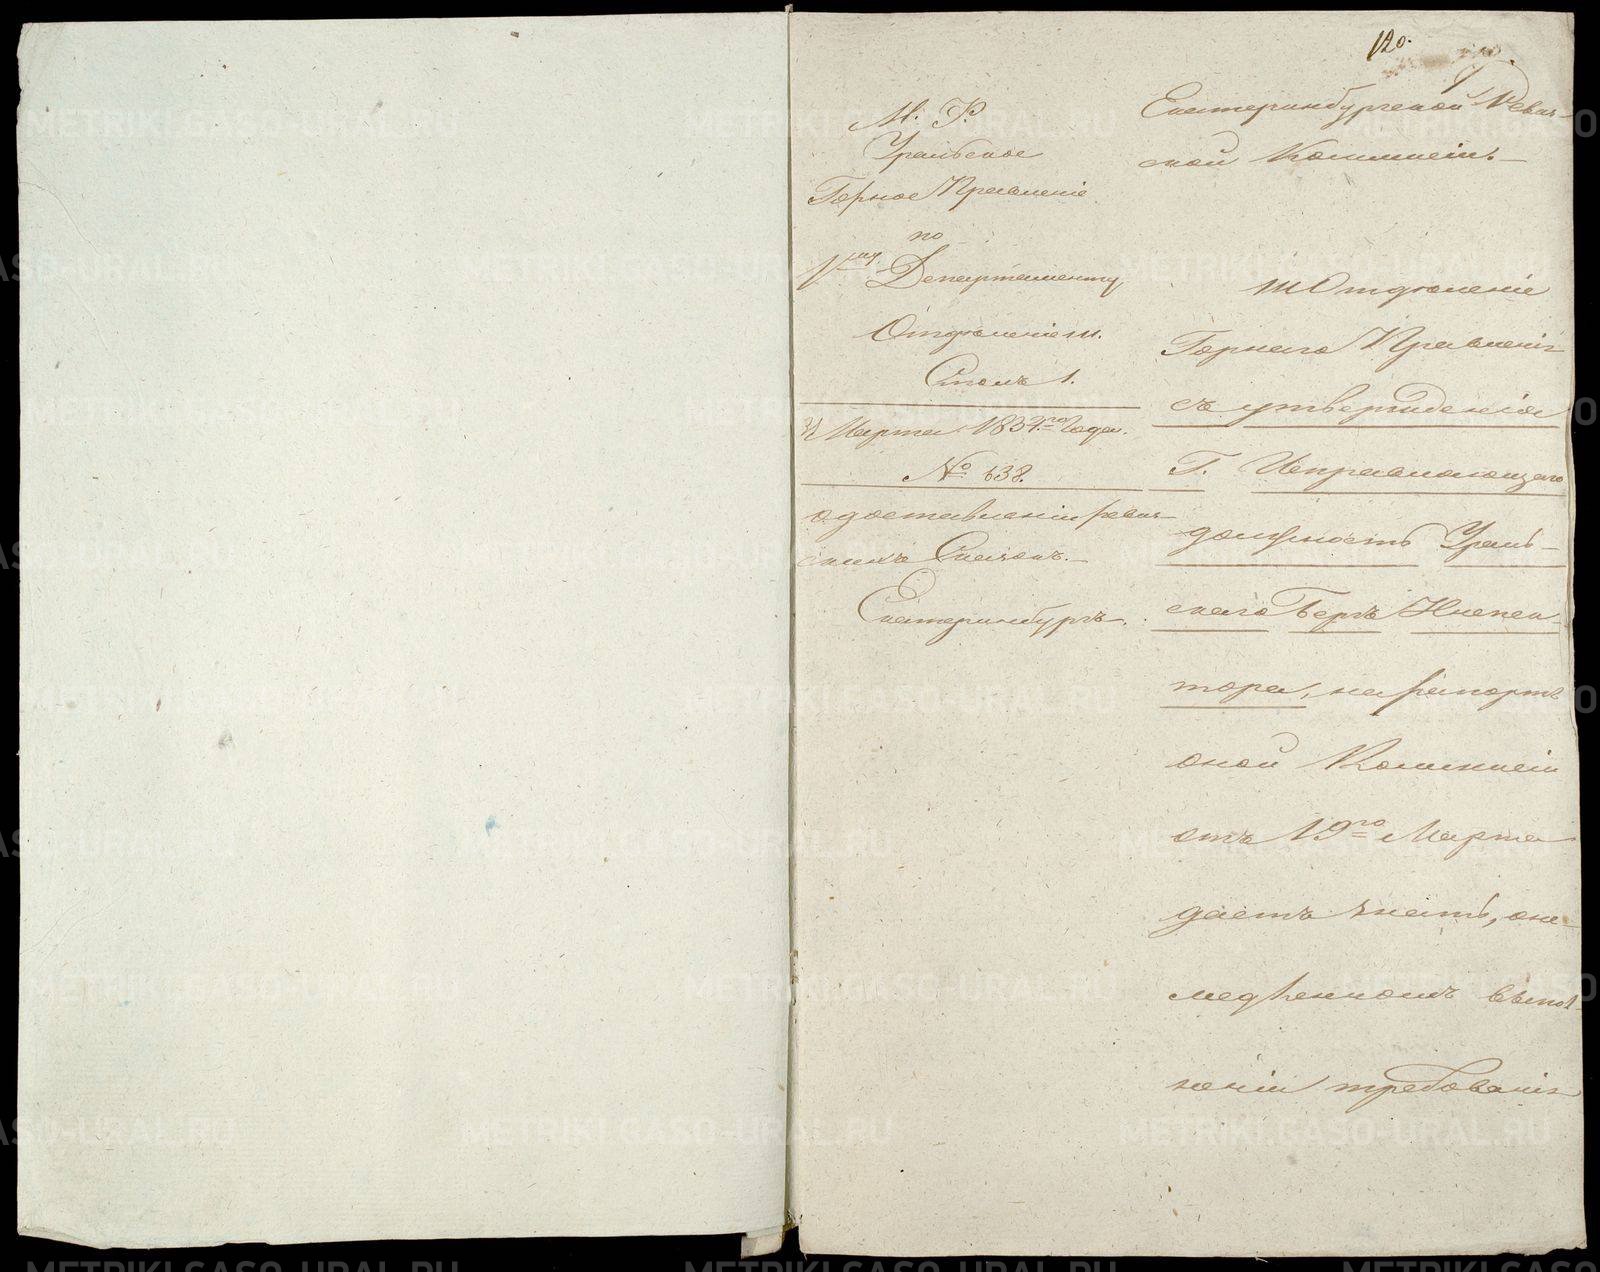 120.
М. Ф.
Уральское
Горное Правленіе
по
1му Департаменту
Отдѣленіе III.
Столъ 1.
Марта 1834го года.
№ 638.
о доставленіи ревиз-
скихъ Сказокъ.
Екатеринбургъ.
Екатеринбургской Ревиз-
ской Коммисіи.
III Отдѣленіе
Горнаго Правленія
съ утвержденія
Г. Исправляющаго
должность Ураль-
скаго Бергъ Инспек-
тора, на рапортъ
оной Коммисіи
отъ 19го Марта
даетъ знать, о не-
медленномъ выпол-
неніи требованія
METRIKI.GASO-URAL.RU